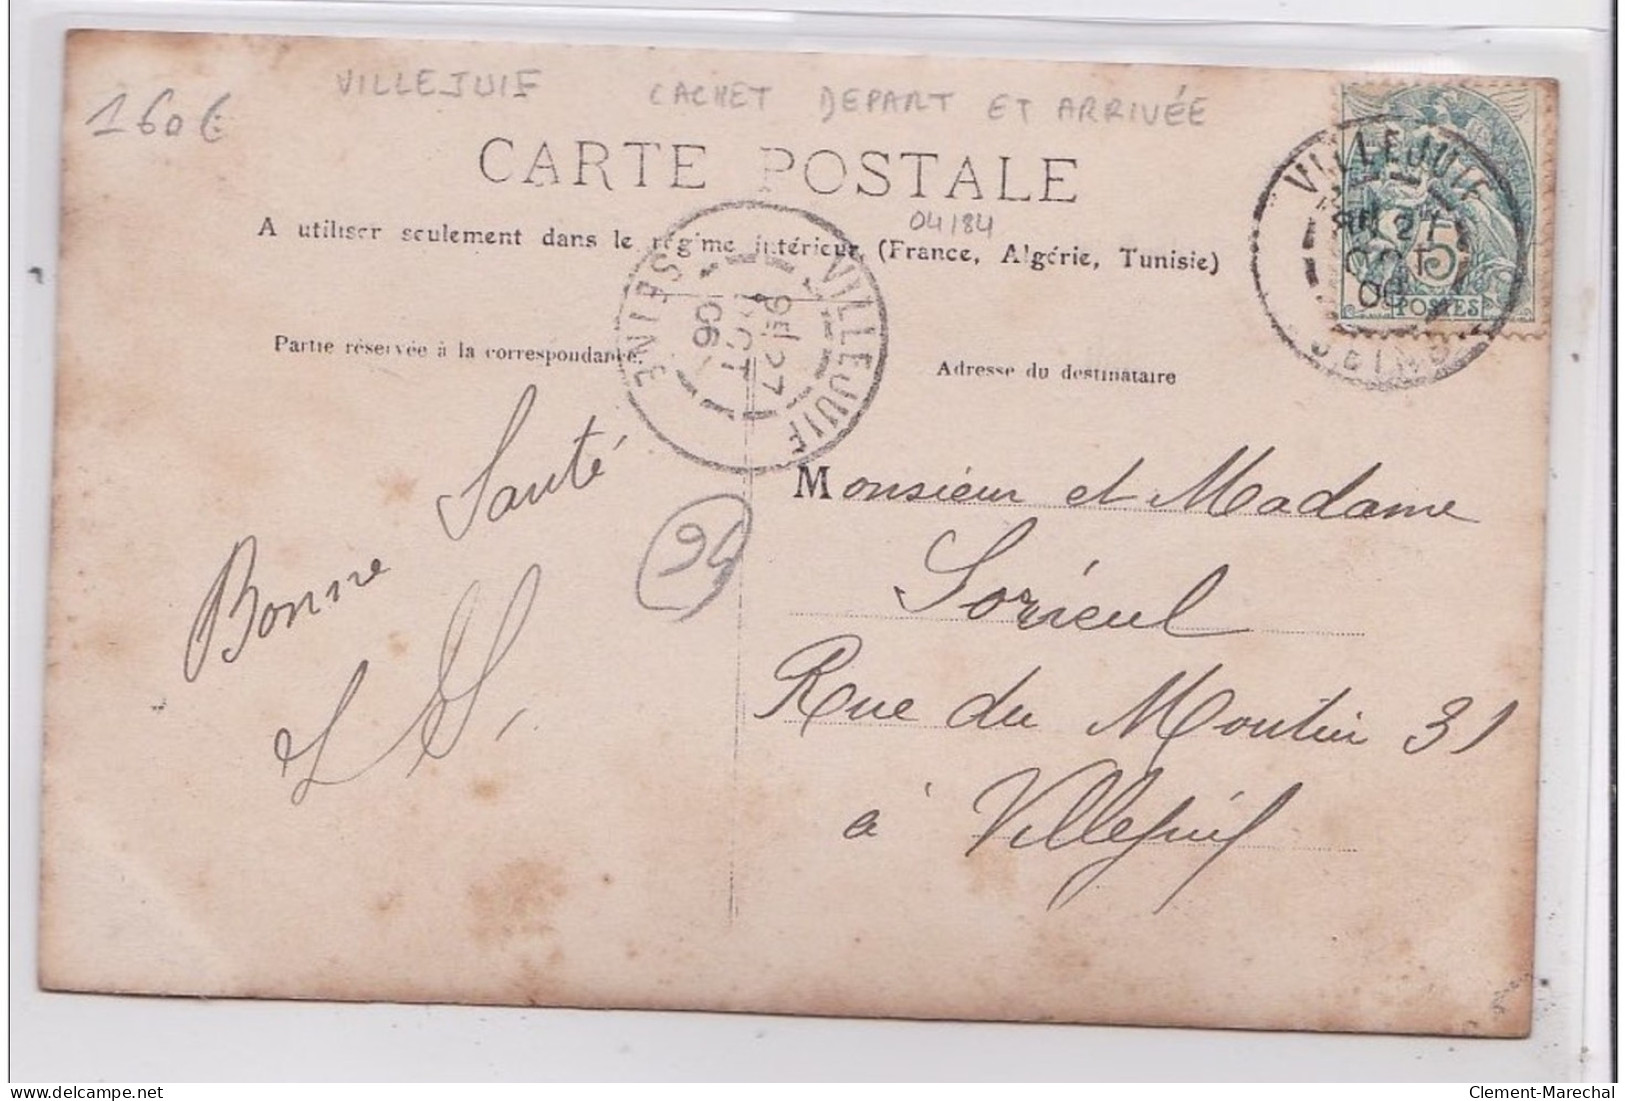 VILLEJUIF CACHET DEPART ET ARRIVÉE
160€
CARTE POSTALE
04184
A utiliser seulement dans le régime intérieur (France, Algérie, Tunisie)
VILLEJUIF
27
OCT
06
SEINE
5
POSTES
VILLEJUIF
9E 27
OCT
06
SEINE
Partie réservée à la correspondance.
Adresse du destinataire
Bonne Santé
94
Monsieur et Madame
Sorieul
Rue du Moutier 31
à Villejuif
delcampe.net
Clement-Marechal